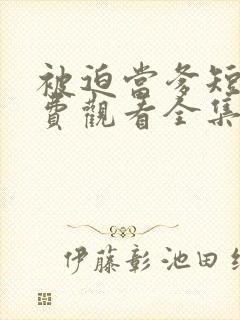 被迫當爹短
費觀看全集
伊藤彰 池田